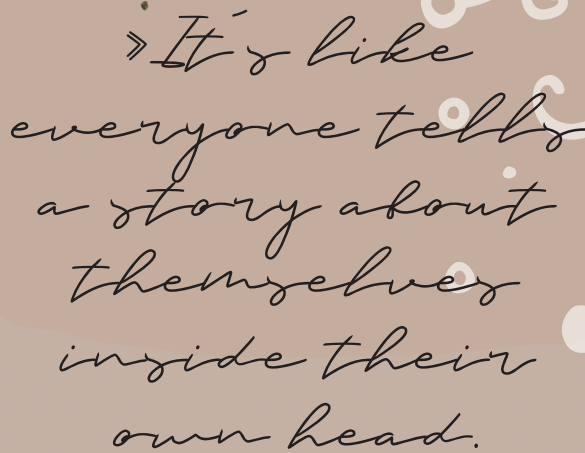 »It´s like
everyone tells
a story about
themselves
inside their
own head.